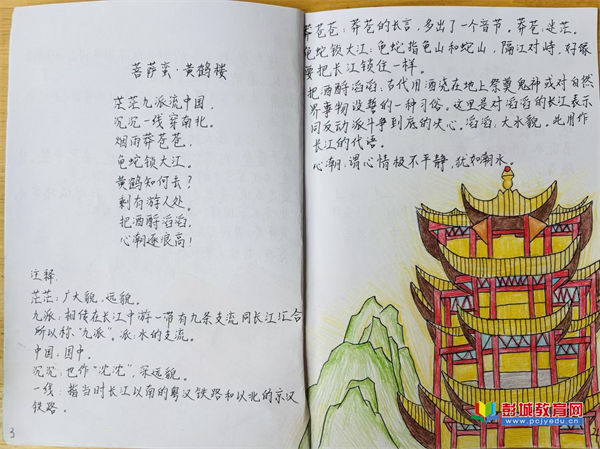 菩萨蛮·黄鹤楼
茫茫九派流中国,
沉沉一线穿南北。
烟雨莽苍苍,
龟蛇锁大江。
黄鹤知何去?
剩有游人处。
把酒酹滔滔,
心潮逐浪高!
注释:
茫茫:广大貌,远貌。
九派:相传在长江中游一带有九条支流同长江汇合
所以称“九派”。派:水的支流。
中国:国中。
沉沉:也作“沈沈”,深远貌。
一线:指当时长江以南的粤汉铁路和以北的京汉
铁路。
3
莽苍苍:莽苍的长言,多出了一个音节。莽苍:迷茫。
龟蛇锁大江:龟蛇指龟山和蛇山,隔江对峙,好像
要把长江锁住一样。
把酒酹滔滔:古代用酒浇在地上祭奠鬼神或对自然
界事物设誓的一种习俗。这里是对滔滔的长江表示
同反动派斗争到底的决心。滔滔:大水貌。此用作
长江的代语。
心潮:谓心情极不平静,犹如潮水。
彭城教育网
www.pcjyedu.cn